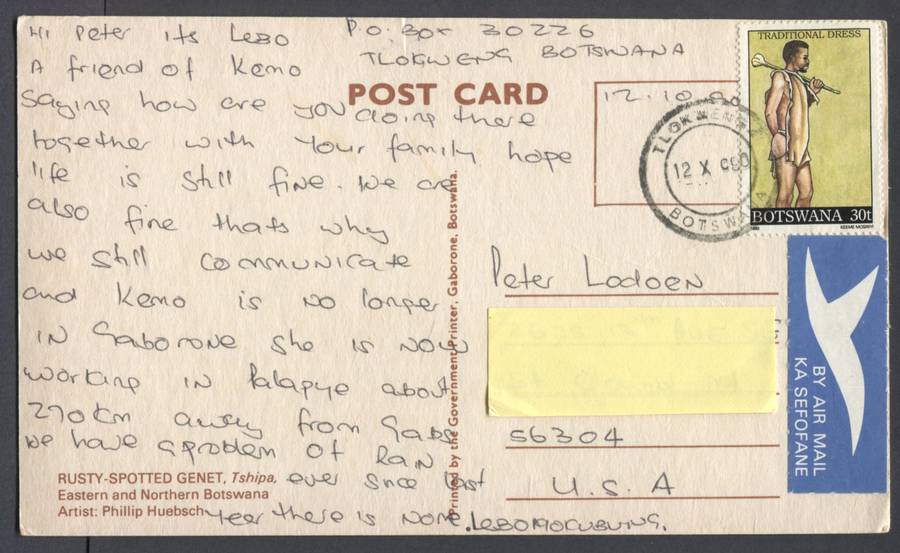 Hi Peter its Lebo
A friend of Kemo
Saying how are you doing there
together with your family hope
life is still fine. We are
also fine thats why
we still communicate
and Kemo is no longer
in Gaborone she is now
working in Palapye about
270km away from Gabs
we have a problem of Rain
ever since last
year there is none. LEBO MOKUBUNG.
RUSTY-SPOTTED GENET, Tshipa,
Eastern and Northern Botswana
Artist: Phillip Huebsch
P.O. Box 30226
TLOKWENG BOTSWANA
POST CARD
12.10.90
TLOKWENG
12 X
BOTSWANA
TRADITIONAL DRESS
BOTSWANA 30t
Printed by the Government Printer, Gaborone, Botswana.
Peter Lodoen
56304
U.S.A
BY AIR MAIL
KA SEFOFANE